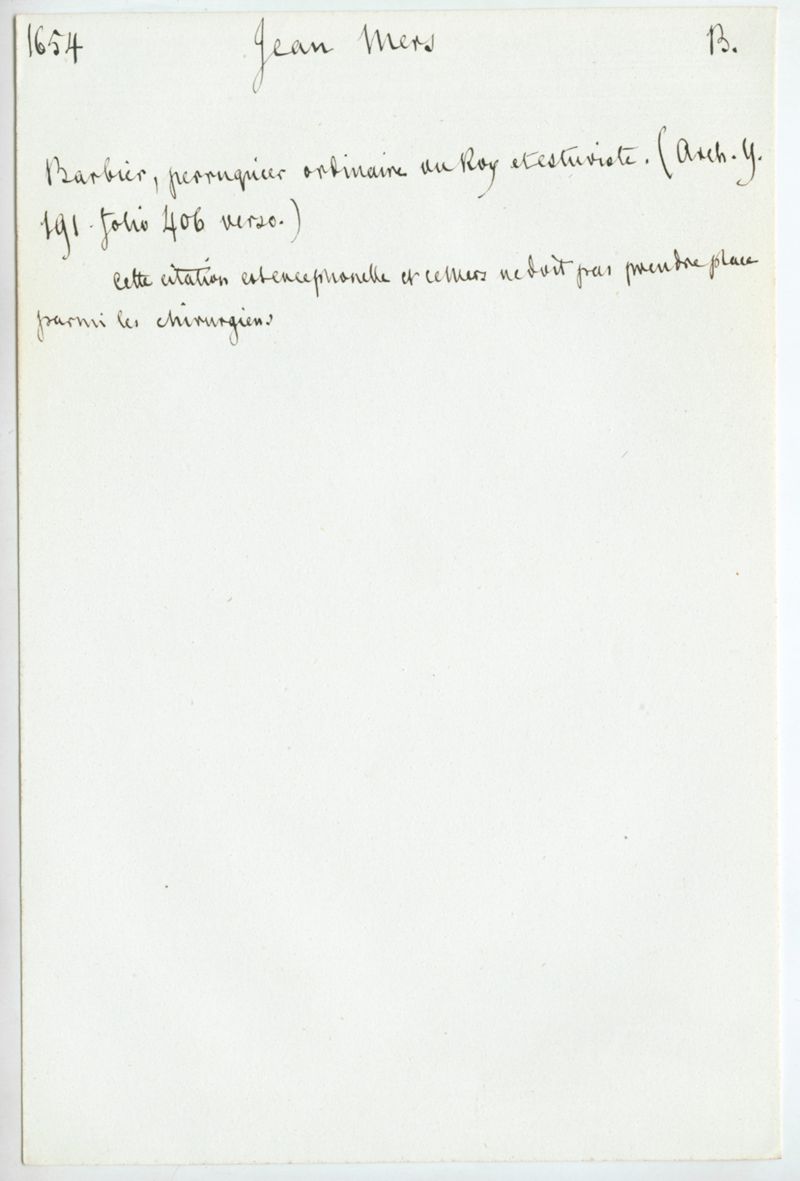 1654 Jean Mers B.
Barbier, perruquier ordinaire du Roy et estuviste. (Arch. Y.
191. folio 406 verso.)
Cette citation est exceptionelle et ce Mers ne doit pas prendre place
parmi les chirurgiens